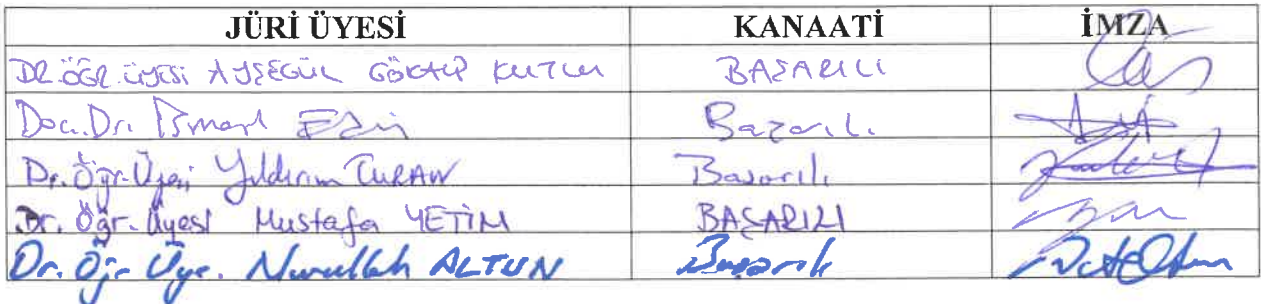 JÜRİ ÜYESİ KANAATİ İMZA
DR. ÖĞR. ÜYESİ AYŞEGÜL GÖKALP KUTLU BAŞARILI
Doç. Dr. İsmail Başarılı
Dr. Öğr. Üyesi Yıldırım TURAN Başarılı
Dr. Öğr. Üyesi Mustafa YETİM BAŞARILI
Dr. Öğr. Üye. Nurullah ALTUN Başarılı